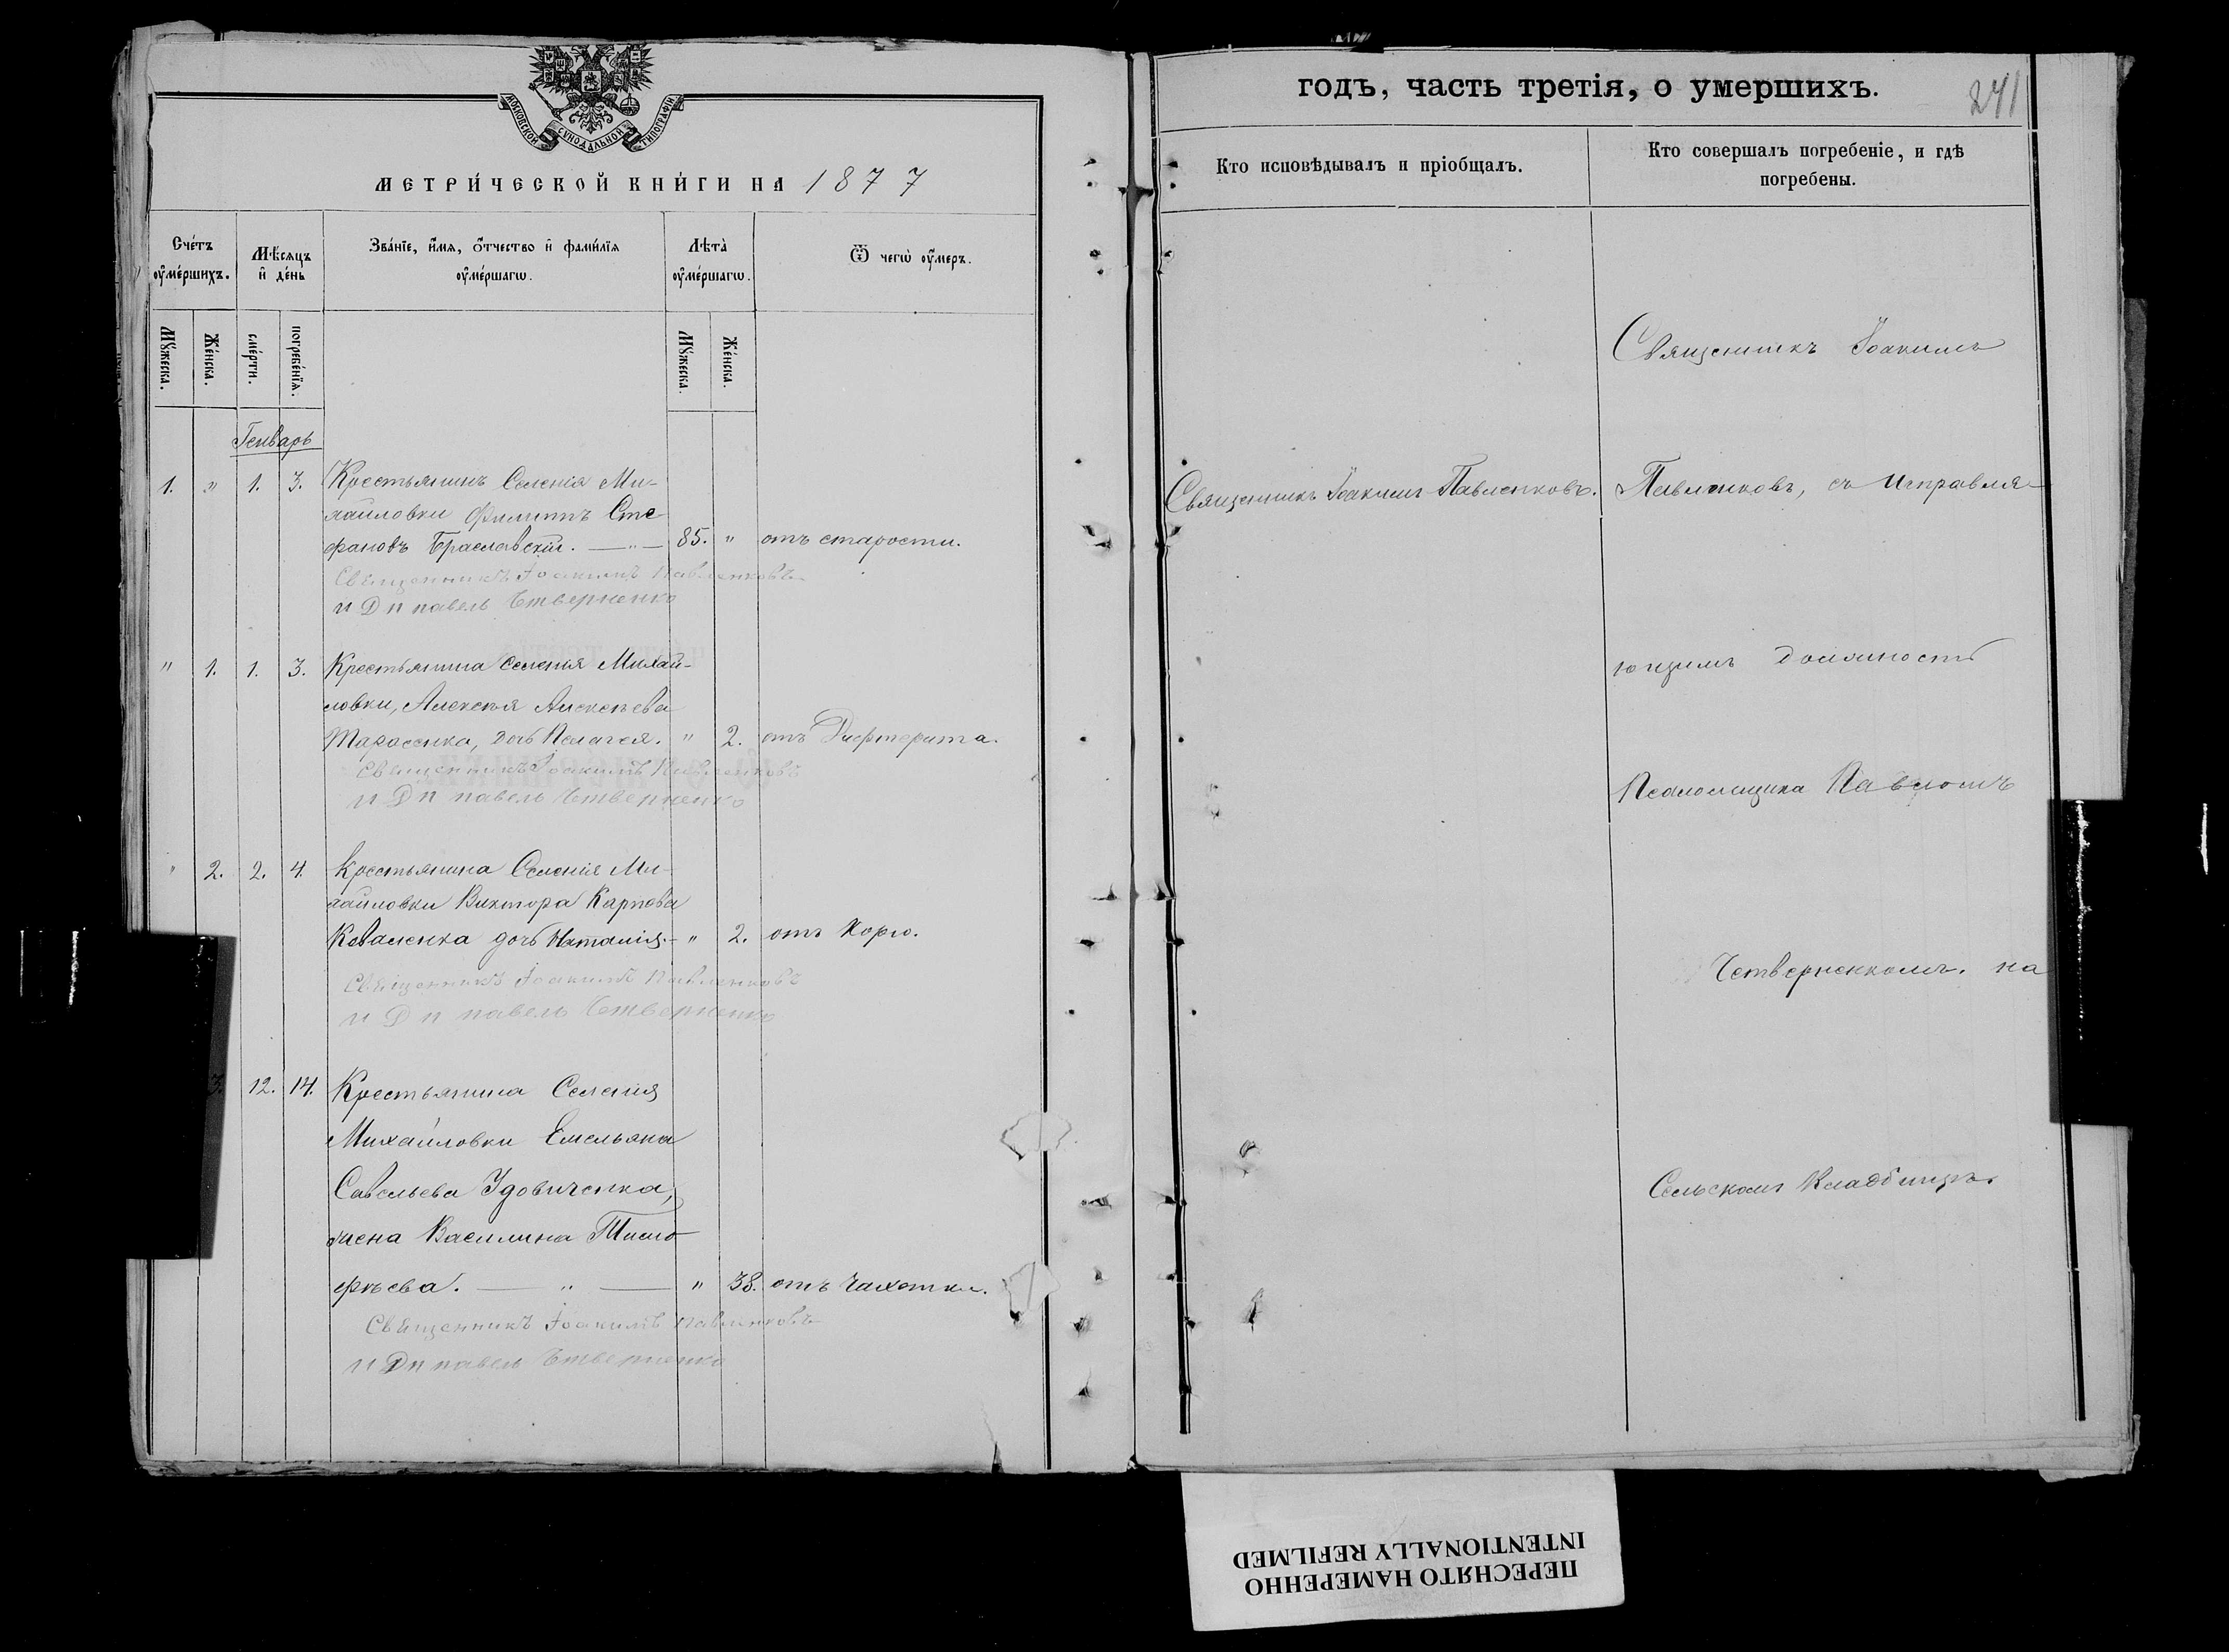 МОСКОВСКОЙ СѴНОДАЛЬНОЙ ТИПОГРАФІИ
МЕТРИ́ЧЕСКОЙ КНИ́ГИ НА 1877
Сче́тъ ᲂу҆ме́ршихъ.
Мѣ́сяцъ и҆ де́нь
Зва́нїе, и҆́мѧ, ѻ҆́тчество и҆ фами́лїѧ ᲂу҆ме́ршагѡ.
Лѣ́та ᲂу҆ме́ршагѡ.
Ѿ чегѡ̀ ᲂу҆́меръ.
Мꙋ́жеска.
Же́нска.
сме́рти.
погребе́нїѧ.
Мꙋ́жеска.
Же́нска.
Генварь
1. " 1. 3. Крестьянинъ Селенія Ми-
хайловки Филиппъ Сте-
фановъ Браславскій. — " — 85. " отъ старости.
Священникъ Іоакимъ Павленковъ
и Д п павелъ Четверненко
" 1. 1. 3. Крестьянина Селенія Михай-
ловки, Алексѣя Алексѣева
Тарасенка, дочь Пелагея. " 2. отъ Дифтерита.
Священникъ Іоакимъ Павленковъ
и Д п павелъ Четверненко
" 2. 2. 4. Крестьянина Селенія Ми-
хайловки Виктора Карпова
Коваленка дочь Наталія. - " 2. отъ Корю.
Священникъ Іоакимъ Павленковъ
и Д п павелъ Четверненко
3. 12. 14. Крестьянина Селенія
Михайловки Емельяна
Савельева Удовиченка,
жена Василина Тимо-
фѣева. — " — " 38. отъ Чахотки.
Священникъ Іоакимъ Павленковъ
и Д п павелъ Четверненко
годъ, часть третія, о умершихъ.
241
Кто исповѣдывалъ и пріобщалъ.
Кто совершалъ погребеніе, и гдѣ
погребены.
Священникъ Іоакимъ Павленковъ.
Священникъ Іоакимъ
Павленковъ, съ Исправля-
ющимъ Должность
Псаломщика Павломъ
Четверненкомъ. на
Сельскомъ Кладбищѣ.
ПЕРЕСНЯТО НАМЕРЕННО
INTENTIONALLY REFILMED